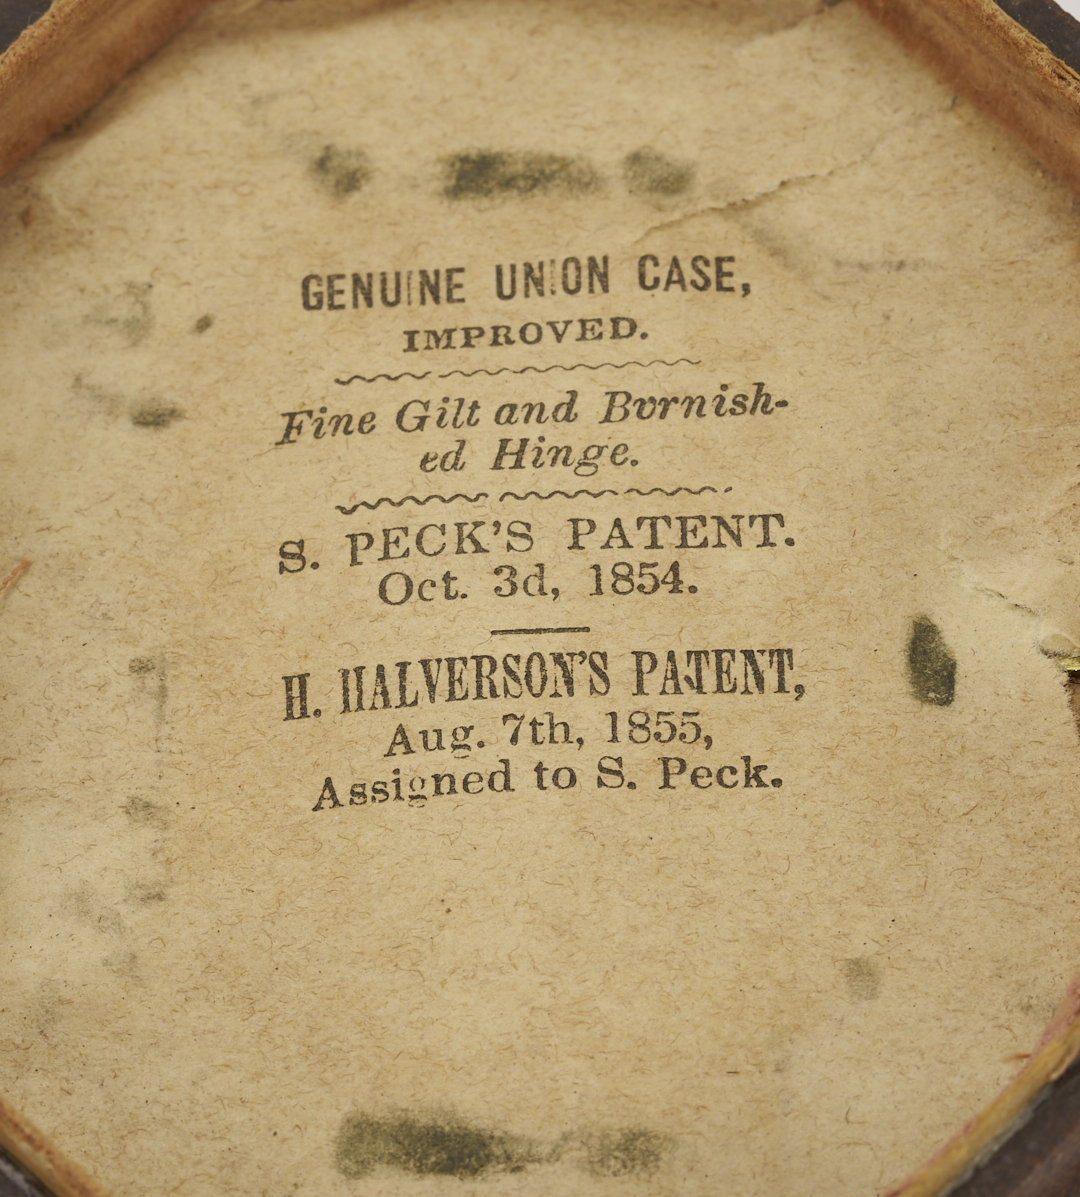 GENUINE UNION CASE,
IMPROVED.
Fine Gilt and Bvrnish-
ed Hinge.
S. PECK'S PATENT.
Oct. 3d, 1854.
H. HALVERSON'S PATENT,
Aug. 7th, 1855,
Assigned to S. Peck.